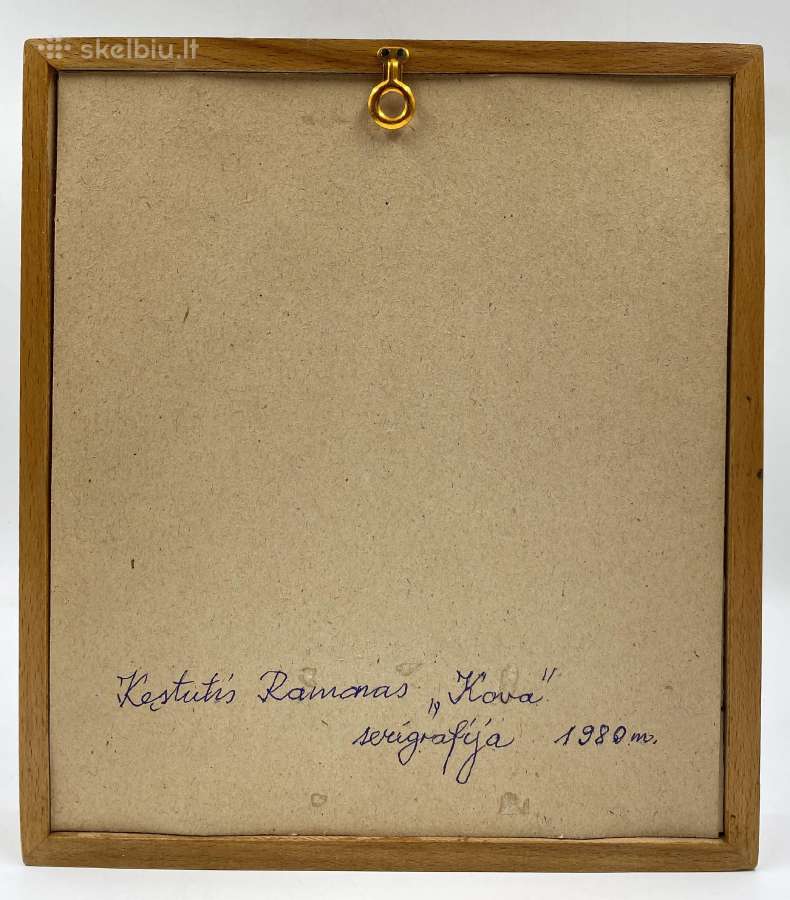 skelbiu.lt
Kęstutis Ramonas „Kova"
serigrafija 1980 m.